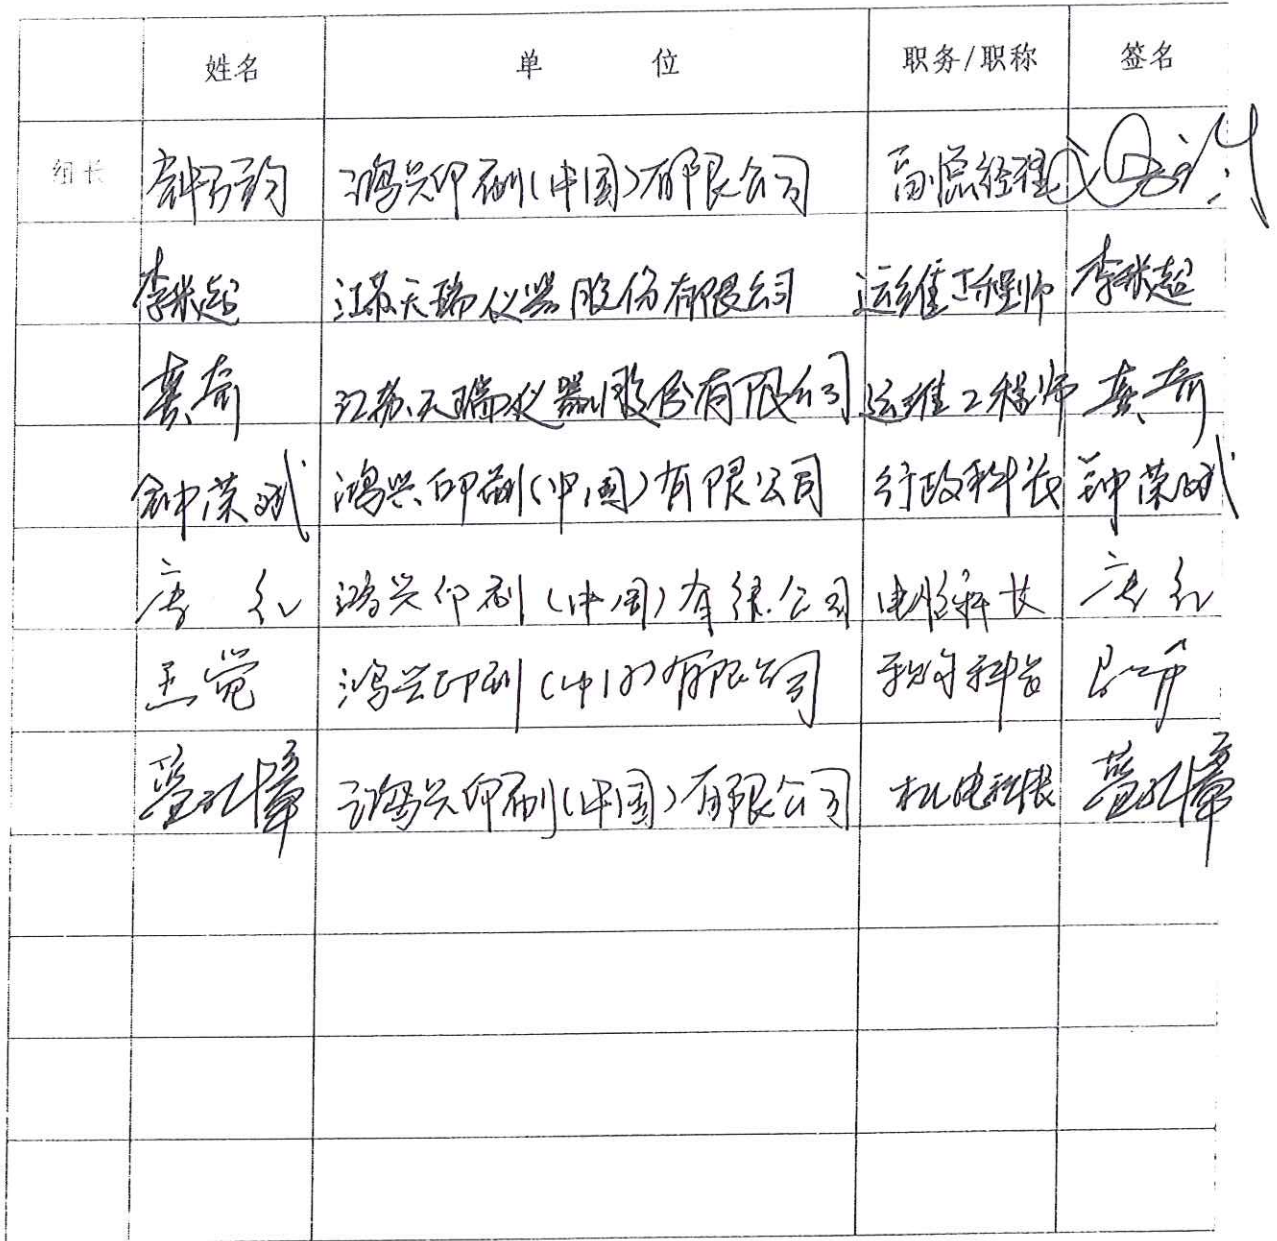 姓名 单 位 职务/职称 签名
组长 钟 鸿兴印刷(中国)有限公司 副总经理
李米超 江苏天瑞仪器股份有限公司 运维工程师 李米超
龚奇 江苏天瑞仪器股份有限公司 运维工程师 龚奇
钟荣斌 鸿兴印刷(中国)有限公司 行政科长 钟荣斌
唐红 鸿兴印刷(中国)有限公司 电脑科长 唐红
鸿兴印刷(中国)有限公司
鸿兴印刷(中国)有限公司 机电科长